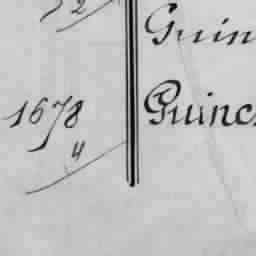 2 Guin
1678 Guinc
4